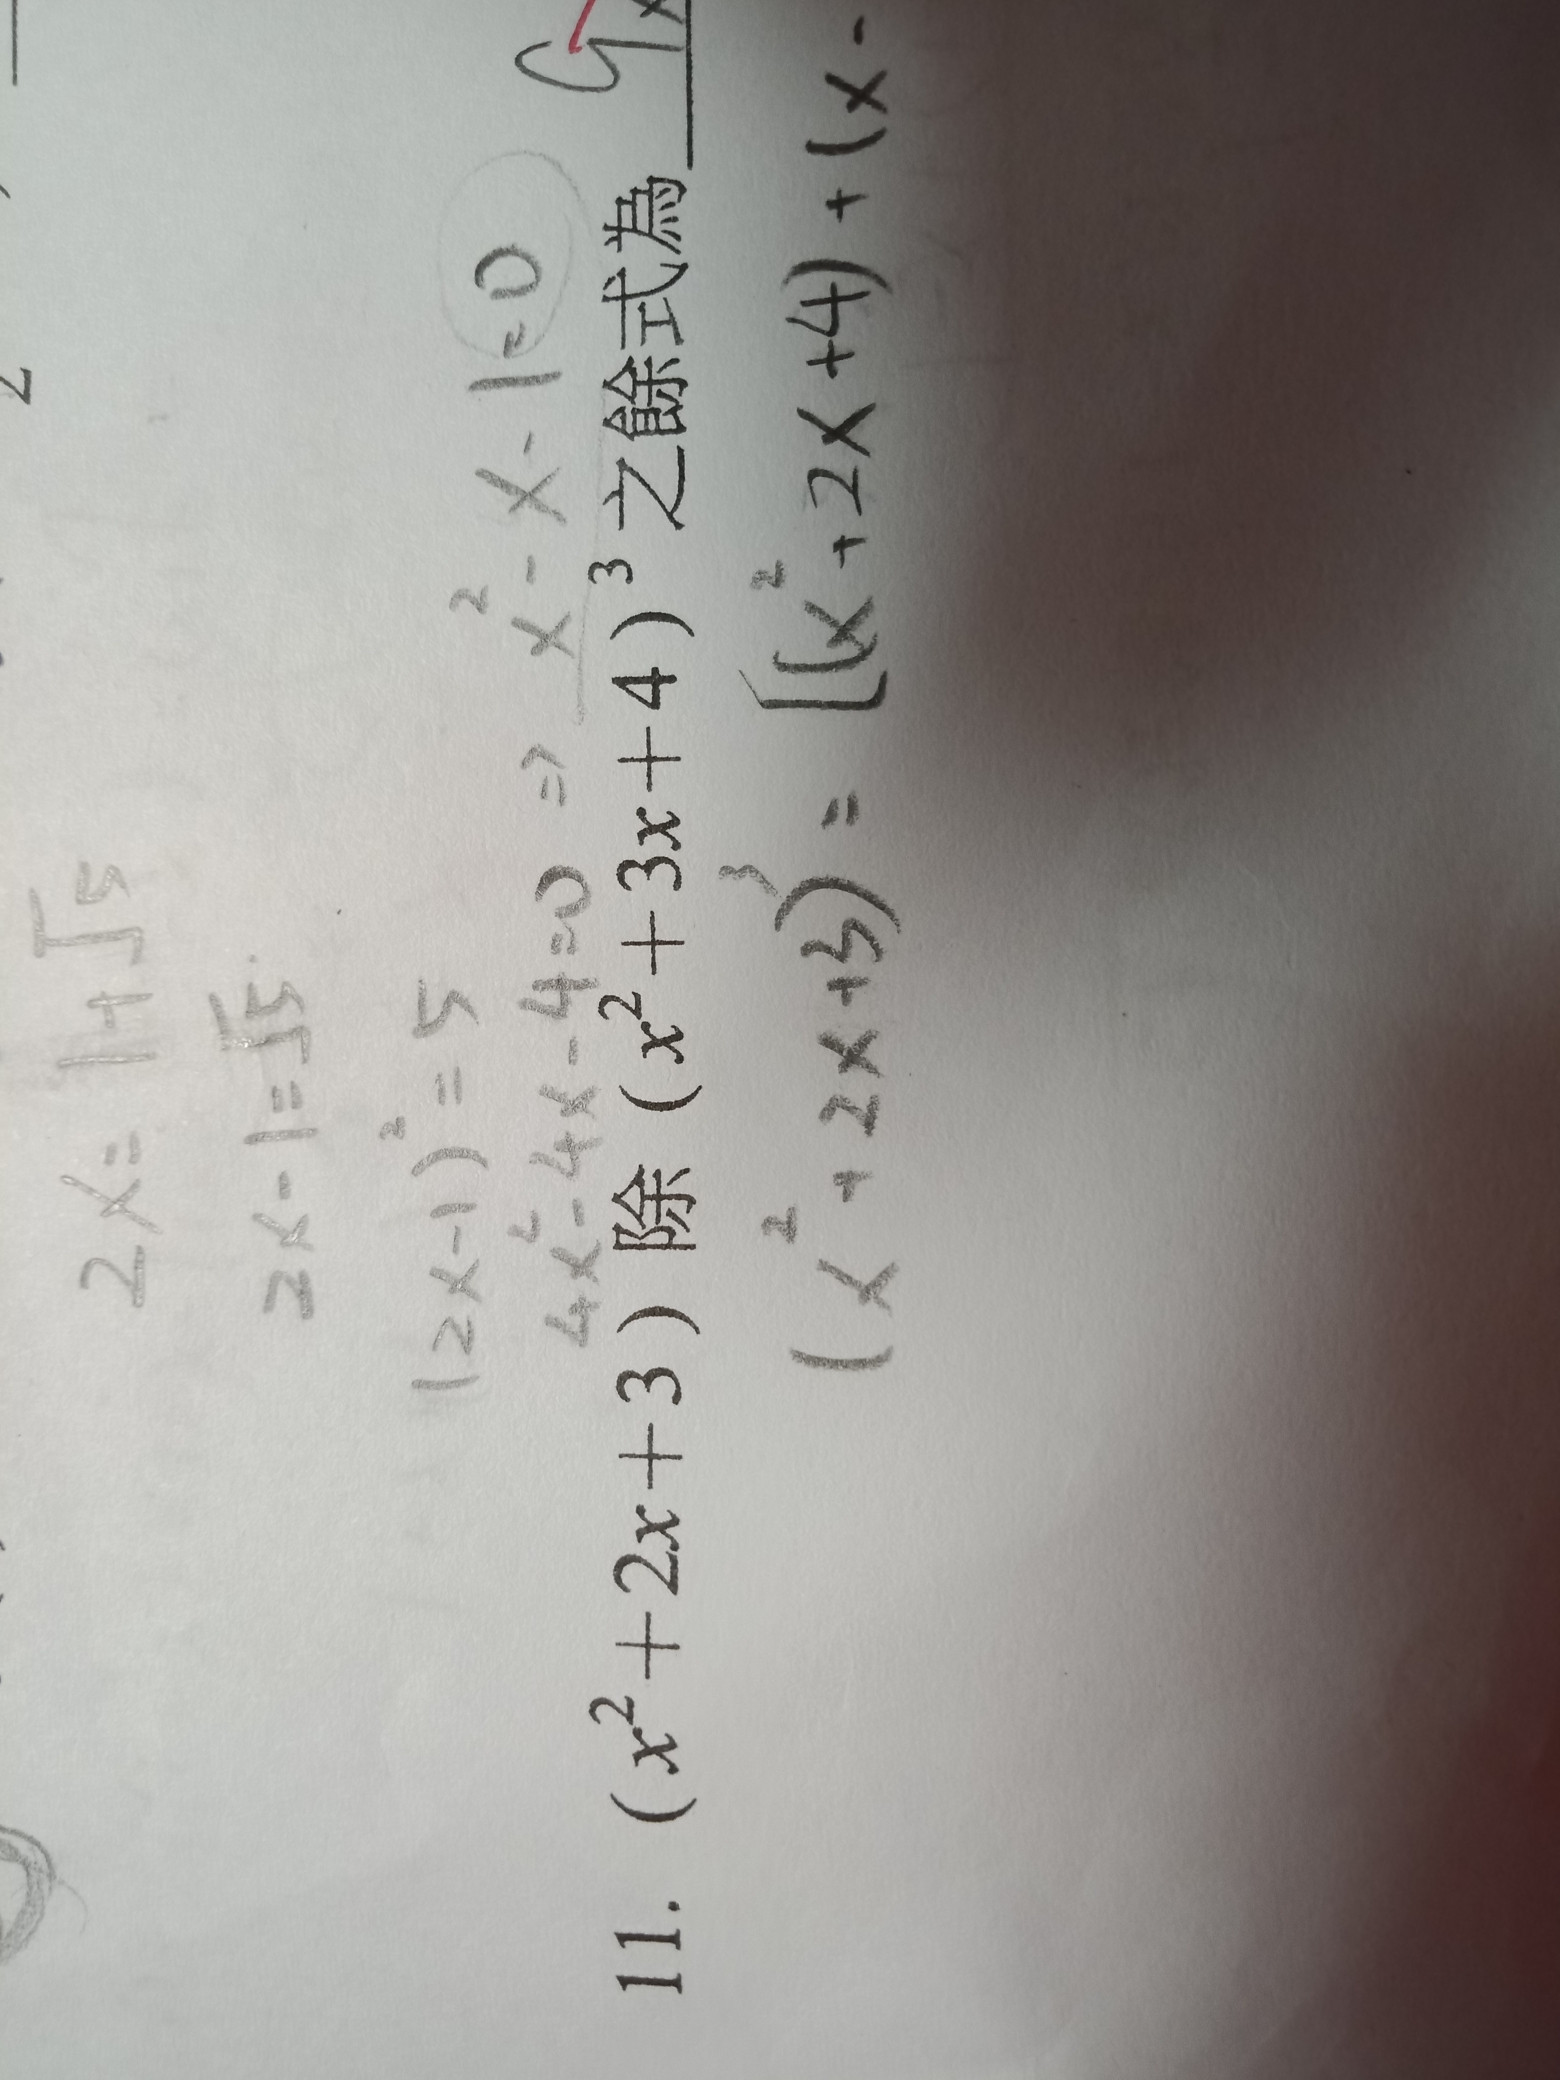 2x = 1+√5
2x-1=√5
(2x-1)² = 5
4x²-4x-4=0 => x²-x-1=0
11. (x²+2x+3) 除 (x²+3x+4)³之餘式為
(x²+2x+3)³ = [(x²+2x+4)+(x-